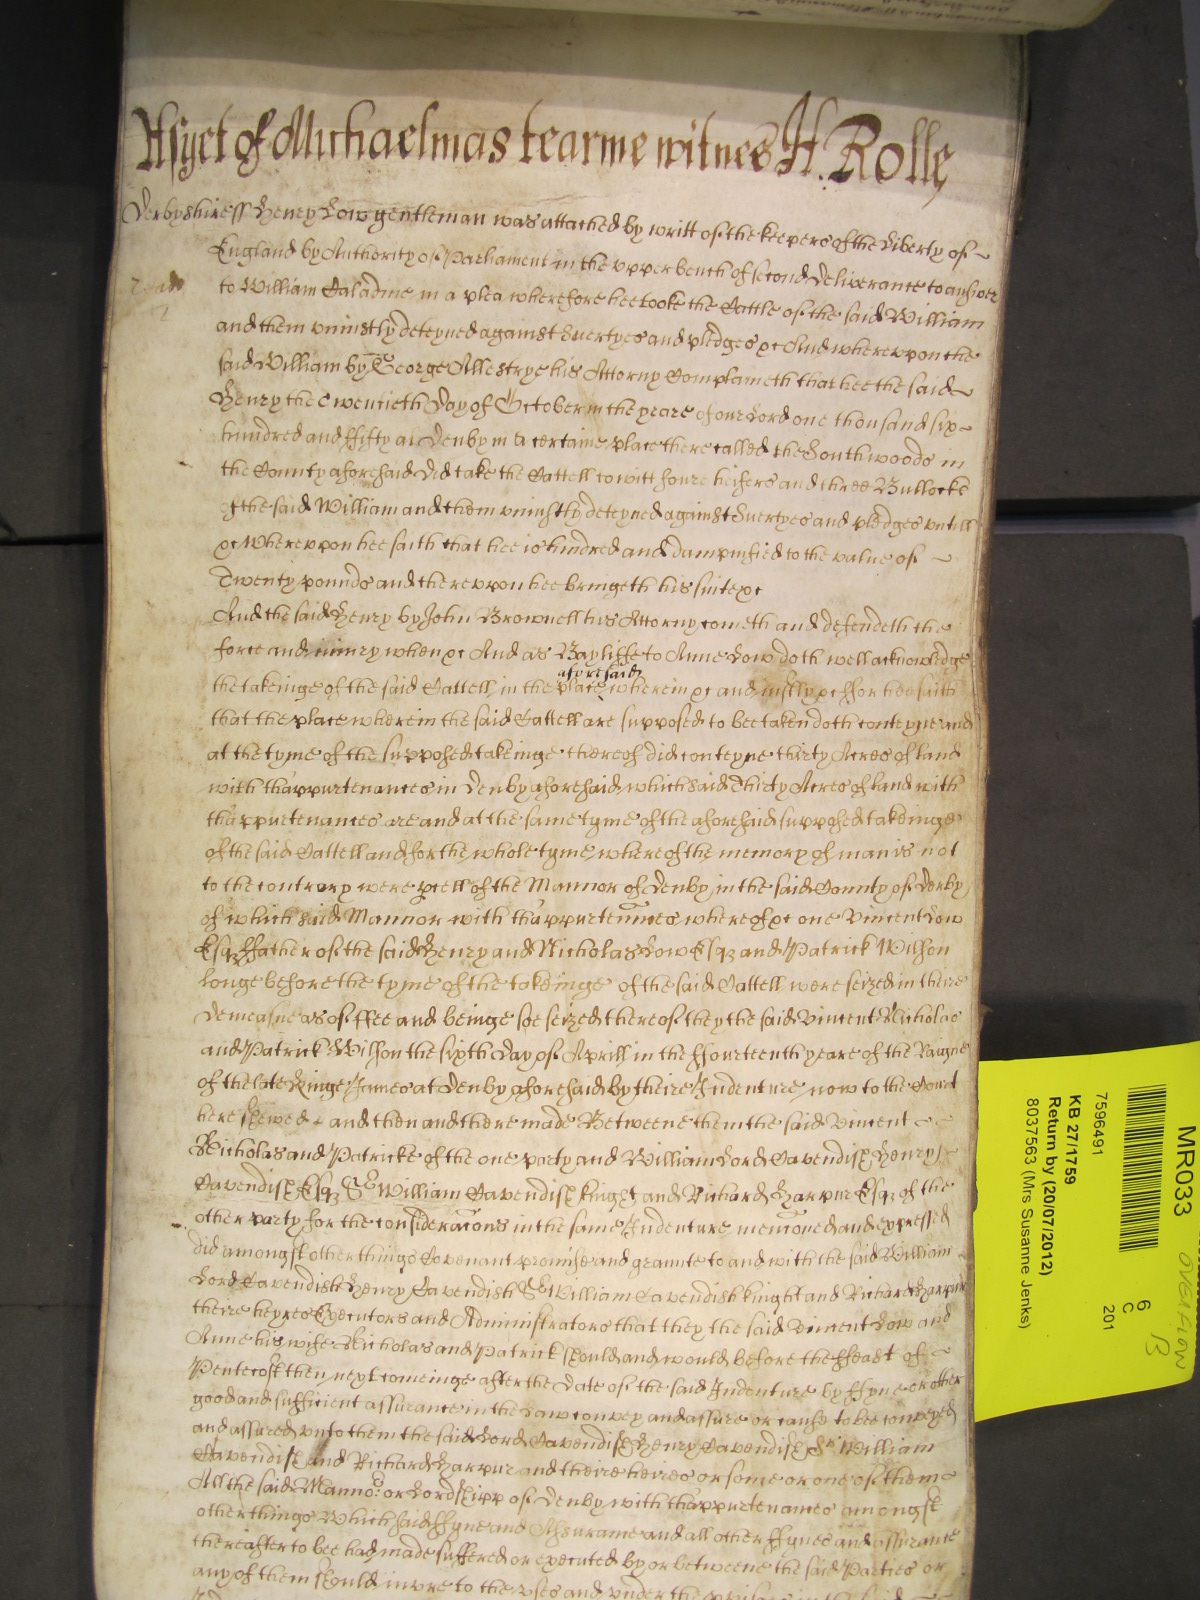 As yet of Michaelmas tearme witnes H. Rolle
Derbyshire ss Henry Low gentleman was attached by writt of the keepers of the Liberty of
England by Authority of Parliament in the upper bench of second deliverance to answer
to William Saladine in a plea wherefore hee tooke the Cattle of the said William
and them uniustly deteyned against suertyes and pledges &c And whereupon the
said William by George Allestrye his Attorny Complaineth that hee the said
Henry the twentieth day of October in the yeare of our Lord one thousand six
hundred and ffifty at Denby in a certaine place there called the Southwoods in
the County aforesaid did take the Cattell to witt foure heifers and three Bullocks
of the said William and them uniustly deteyned against suertyes and pledges untill
&c Whereupon hee saith that hee is hindred and dampnified to the value of
Twenty pounds and thereupon hee bringeth his suite &c
And the said Henry by John Brownell his Attorny cometh and defendeth the
force and iniury when &c And as Bayliffe to Anne Low doth well acknowledge
the takeinge of the said Cattell in the place aforesaid wherein &c and iustly &c ffor hee saith
that the place wherein the said Cattell are supposed to bee taken doth conteyne and
at the tyme of the supposed takeinge thereof did conteyne thirty Acres of land
with thappurtenances in Denby aforesaid which said Thirty Acres of land with
thappurtenances are and at the same tyme of the aforesaid supposed takeinge
of the said Cattell and for the whole tyme whereof the memory of man is not
to the contrary were pcell of the Mannor of Denby in the said County of Derby
of which said Mannor with thappurtennces whereof &c one Vincent Low
Esqr ffather of the said Henry and Nicholas Low Esqr and Patrick Wilson
longe before the tyme of the takeinge of the said Cattell were seized in theire
demeasne as of ffee and beinge soe seized thereof they the said Vincent Nicholas
and Patrick Wilson the sixth day of Aprill in the ffourteenth yeare of the Raigne
of the late Kinge James at Denby aforesaid by theire Indenture now to the Court
here shewed and then and there made Betweene them the said Vincent
Nicholas and Patricke of the one party and William Lord Cavendish Henry
Cavendish Esqr Sr William Cavendish knight and Richard Harpur Esqr of the
other party for the consideracons in the same Indenture menconed and expressed
did amongst other things Covenant promise and graunte to and with the said William
Lord Cavendish Henry Cavendish Sr William Cavendish knight and Richard Harpur
theire heyres Executors and Administrators that they the said Vincent Low and
Anne his wife Nicholas and Patrick should and would before the ffeast of
Pentecost then next comeinge after the date of the said Indenture by ffyne or other
good and sufficient assurance in the Law convey and assure or cause to bee conveyed
and assured unto them the said Lord Cavendish Henry Cavendish Sr William
Cavendish and Richard Harpur and theire heires or some or one of them
All the said Mannor or Lordshipp of Denby with thappurtenances amongst
other things Which said ffyne and Assurance and all other ffynes and assurance
thereafter to bee had made suffered or executed by or betweene the said Parties or
any of them should inure to the uses and under the
MR033
OVERFLOW
B
6
C
201
7596491
KB 27/1759
Return by (20/07/2012)
8037563 (Mrs Susanne Jenks)